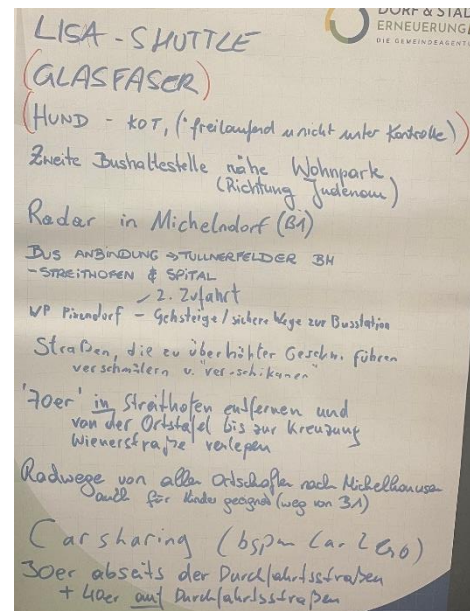 DORF & STADT
ERNEUERUNG
DIE GEMEINDEAGENTUR
LISA-SHUTTLE
(GLASFASER)
(HUND - KOT, (*freilaufend u nicht unter Kontrolle))
Zweite Bushaltestelle nähe Wohnpark
(Richtung Judenau)
Radar in Michelndorf (B1)
BUS ANBINDUNG → TULLNERFELDER BH
- STREITHOFEN & SPITAL
- 2. Zufahrt
WP Pixendorf - Gehsteige/sichere Wege zur Busstation
Straßen, die zu überhöhter Geschw. führen
verschmälern u. "ver-schikanen"
'70er' in Streithofen entfernen und
von der Ortstafel bis zur Kreuzung
Wienerstraße verlegen
Radwege von allen Ortschaften nach Michelhausen
auch für Kinder geeignet (weg von B1)
Carsharing (bspw
30er abseits der Durchfahrtsstraßen
+ 40er auf Durchfahrtsstraßen